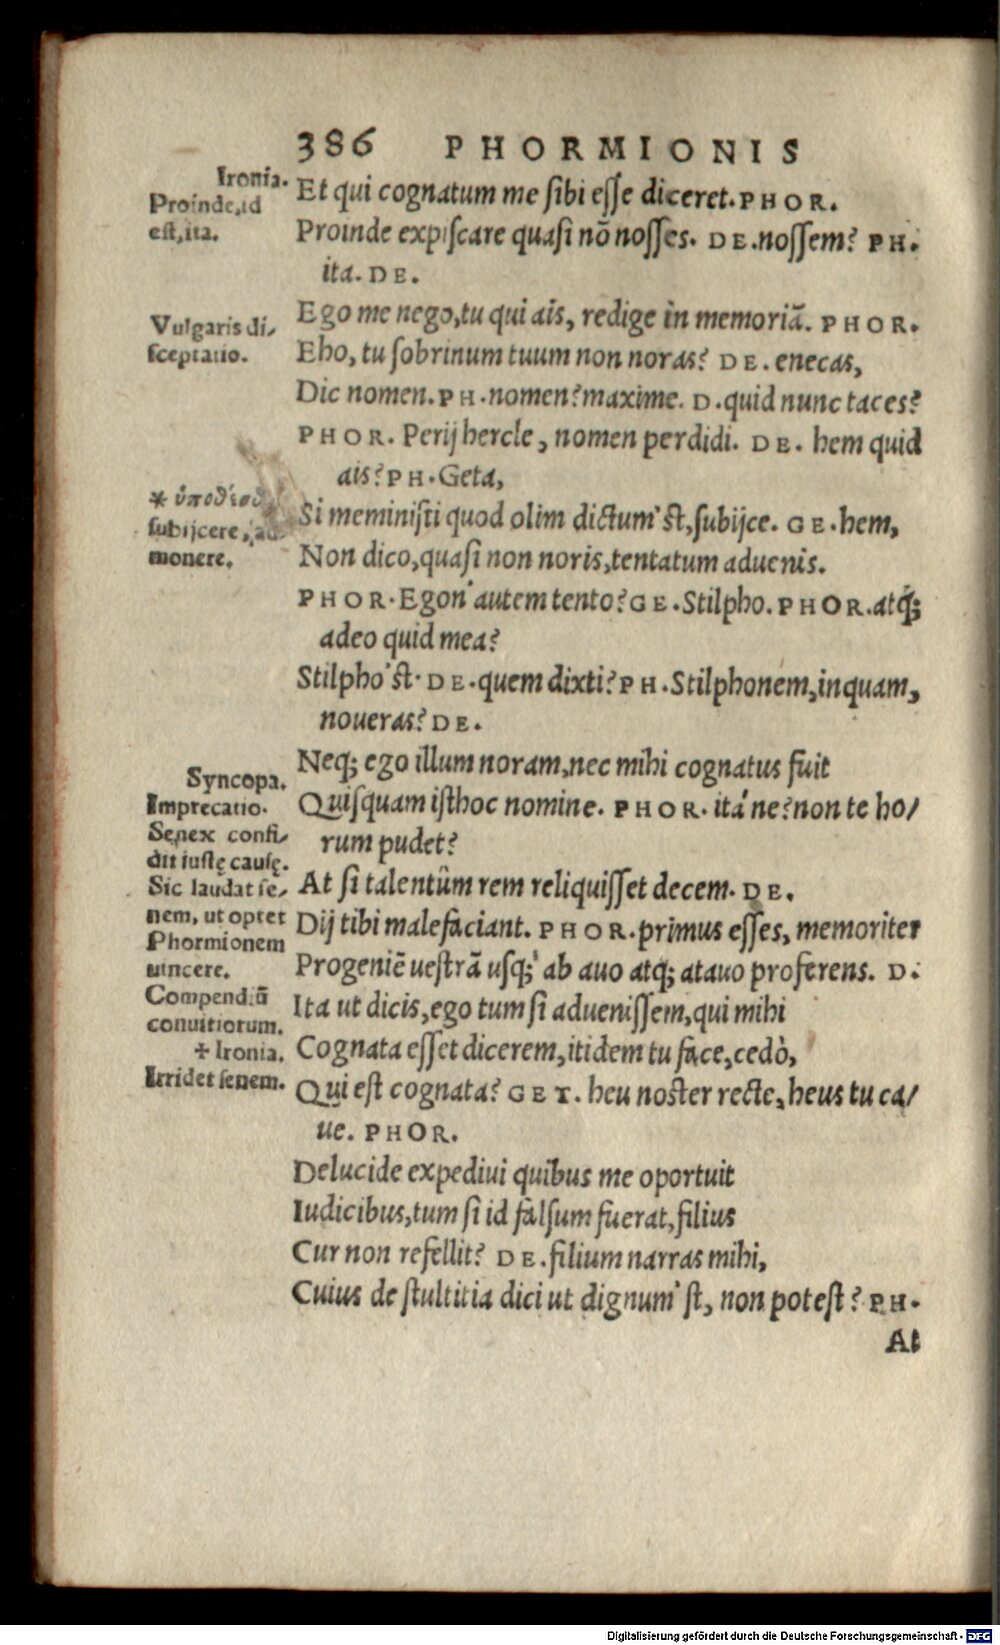 386 PHORMIONIS
Ironia.
Proinde,id
est,ita.
Vulgaris di⸗
sceptatio.
* ὑποθέσθ
subijcere, ad
monere.
Syncopa.
Imprecatio.
Senex confi⸗
dit iustę causę.
Sic laudat se⸗
nem, ut optet
Phormionem
uincere.
Compendiū
conuitiorum.
+ Ironia.
Irridet senem.
Et qui cognatum me sibi esse diceret. PHOR.
Proinde expiscare quasi nō nosses. DE. nossem? PH.
ita. DE.
Ego me nego, tu qui ais, redige in memoriā. PHOR.
Eho, tu sobrinum tuum non noras? DE. enecas,
Dic nomen. PH. nomen? maxime. D. quid nunc taces?
PHOR. Perij hercle, nomen perdidi. DE. hem quid
ais? PH. Geta,
Si meministi quod olim dictum'st, subijce. GE. hem,
Non dico, quasi non noris, tentatum aduenis.
PHOR. Egon' autem tento? GE. Stilpho. PHOR. atq;
adeo quid mea?
Stilpho'st. DE. quem dixti? PH. Stilphonem, inquam,
noueras? DE.
Neq; ego illum noram, nec mihi cognatus fuit
Quisquam isthoc nomine. PHOR. ita'ne? non te ho⸗
rum pudet?
At si talentûm rem reliquisset decem. DE.
Dij tibi malefaciant. PHOR. primus esses, memoriter
Progeniē uestrā usq; ab auo atq; atauo proferens. D.
Ita ut dicis, ego tum si aduenissem, qui mihi
Cognata esset dicerem, itidem tu face, cedò,
Qui est cognata? GET. heu noster recte, heus tu ca⸗
ue. PHOR.
Delucide expediui quibus me oportuit
Iudicibus, tum si id falsum fuerat, filius
Cur non refellit? DE. filium narras mihi,
Cuius de stultitia dici ut dignum'st, non potest? PH.
At
Digitalisierung gefördert durch die Deutsche Forschungsgemeinschaft - DFG